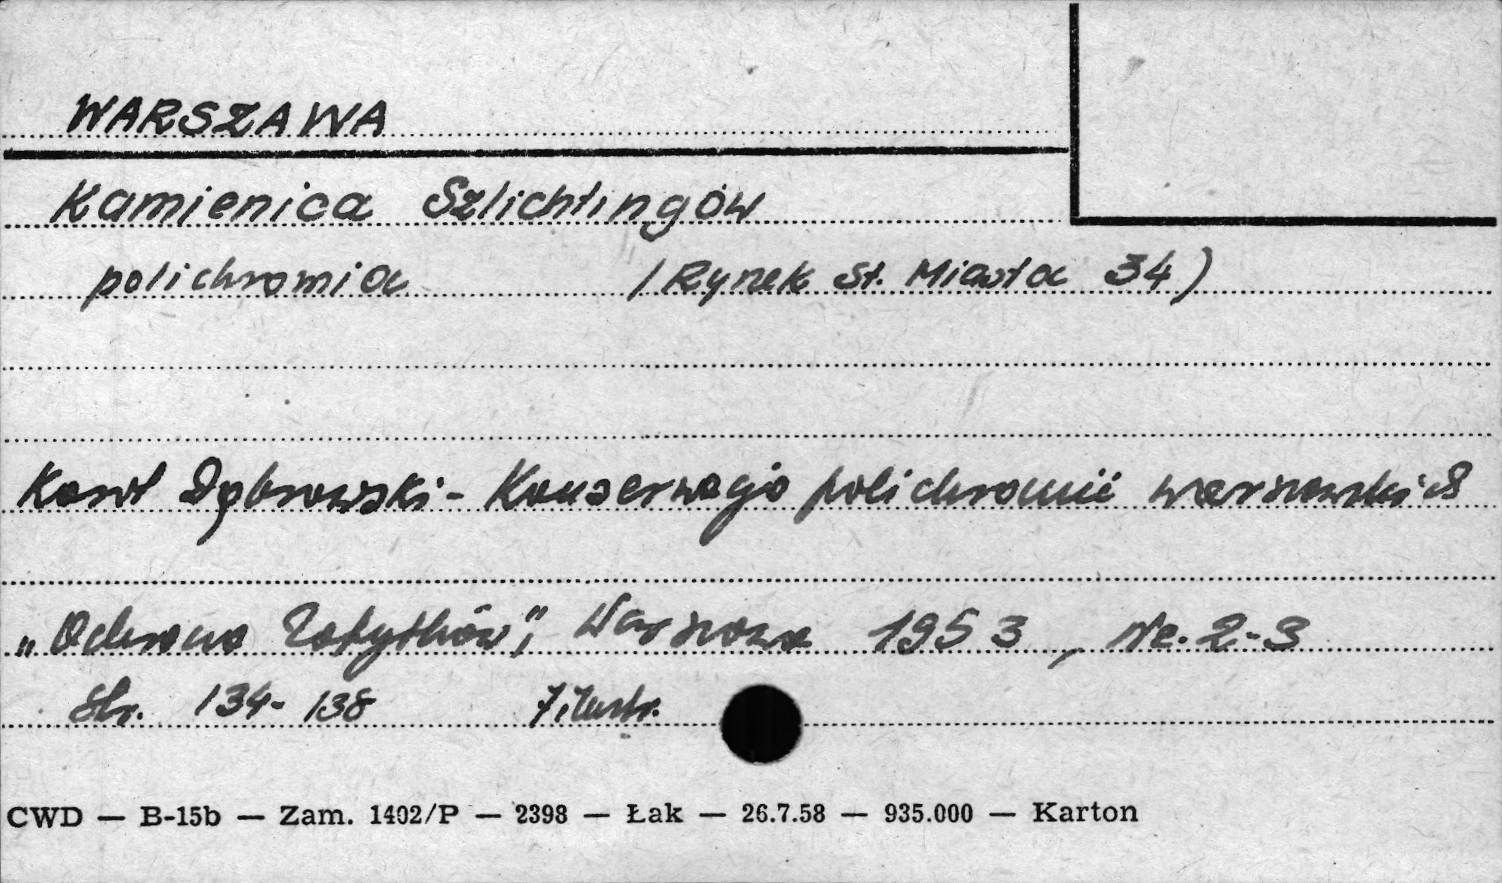 WARSZAWA
Kamienica Szlichtingów
polichromia (Rynek St. Miasta 34)
Karol Dąbrowski - Konserwacja polichromii warszawskich
„Ochrona Zabytków”, Warszawa 1953, Nr. 2-3
Str. 134-138 7 ilustr.
CWD — B-15b — Zam. 1402/P — 2398 — Łak — 26.7.58 — 935.000 — Karton